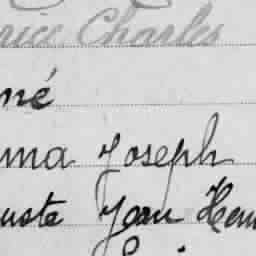 rice Charles
né
ma Joseph
uste Jean Hen